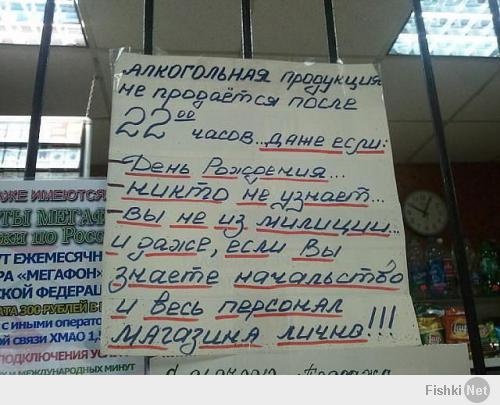 АЛКОГОЛЬНАЯ продукция
не продаётся после
22 00 часов... даже если:
- День Рождения...
- никто не узнает...
- вы не из милиции...
и даже, если Вы
знаете начальство
и весь персонал
магазина лично!!!
ЖЕ ИМЕЮТСЯ
ТЫ МЕГАФ
по Росс
УТ ЕЖЕМЕСЯЧН
РА «МЕГАФОН»
СКОЙ ФЕДЕРАЦ
АТА 300 РУБЛЕЙ В
С ИНЫМИ ОПЕРАТО
Й СВЯЗИ ХМАО 1,
ПОДКЛЮЧЕНИЯ УС
И МЕЖДУНАРОДНЫХ МИНУТ
Fishki.Net